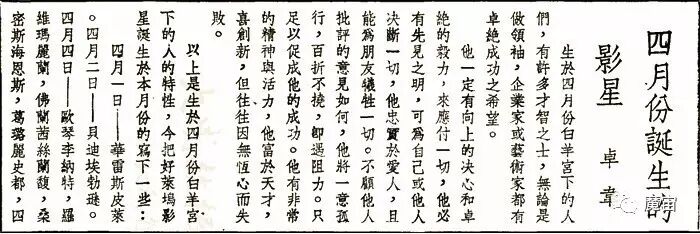 四月份誕生的
影星 卓韋
生於四月份白羊宮下的人
們，有許多才智之士，無論是
做領袖，企業家或藝術家都有
卓絕成功之希望。
他一定有向上的決心和卓
絕的毅力，來應付一切，他必
有先見之明，可為自己或他人
決斷一切，他忠實於愛人，且
能為朋友犧牲一切。不顧他人
批評的意見如何，他將一意孤
行，百折不撓，卽遇阻力。只
足以促成他的成功。他有非常
的精神與活力，他富於天才，
喜創新，但往往因無恆心而失
敗。
以上是生於四月份白羊宮
下的人的特性，今把好萊塢影
星誕生於本月份的寫下一些：
四月一日——華雷斯皮萊
。四月二日——貝迪埃勃遜。
四月四日——歐琴李納特，羅
維瑪麗蘭，佛蘭茜絲蘭馥，桑
密斯海恩斯，葛璐麗史都，四
魔宙